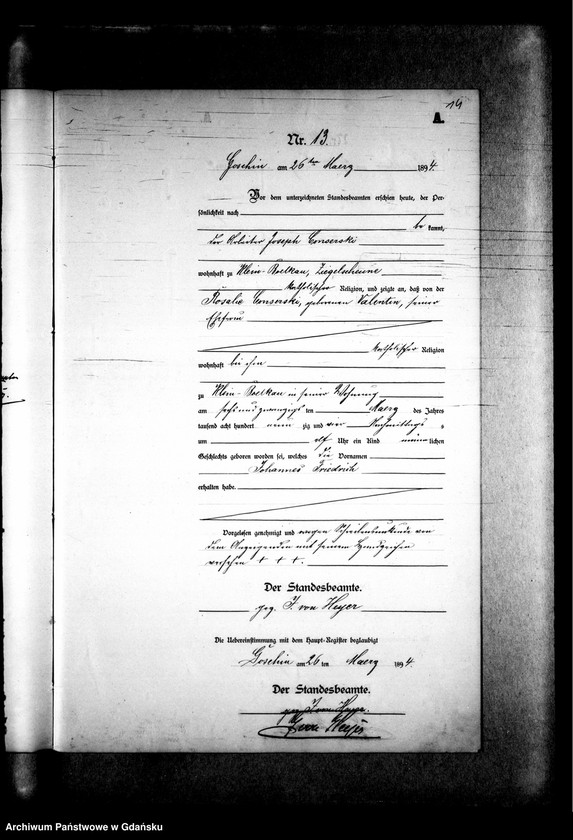 14
A.
Nr. 13.
Goschin am 26ten Maerz 1894.
Vor dem unterzeichneten Standesbeamten erschien heute, der Per-
sönlichkeit nach
be kannt,
der Arbeiter Joseph Conserski
wohnhaft zu Klein-Boelkau, Ziegelscheune
katholischer Religion, und zeigte an, daß von der
Rosalie Conserski, geborenen Valentin, seiner
Ehefrau
katholischer Religion
wohnhaft bei ihm
zu Klein-Boelkau in seiner Wohnung
am sechsundzwanzigsten Maerz des Jahres
tausend acht hundert neun zig und vier Nachmittags s
um elf Uhr ein Kind männlichen
Geschlechts geboren worden sei, welches die Vornamen
Johannes Friedrich
erhalten habe.
Vorgelesen, genehmigt und wegen Schreibensunkunde von
dem Anzeigenden mit seinem Handzeichen
versehen + + +.
Der Standesbeamte.
gez. F. von Heyer
Die Uebereinstimmung mit dem Haupt-Register beglaubigt
Goschin am 26 ten Maerz 1894.
Der Standesbeamte.
von Heyer
Archiwum Państwowe w Gdańsku